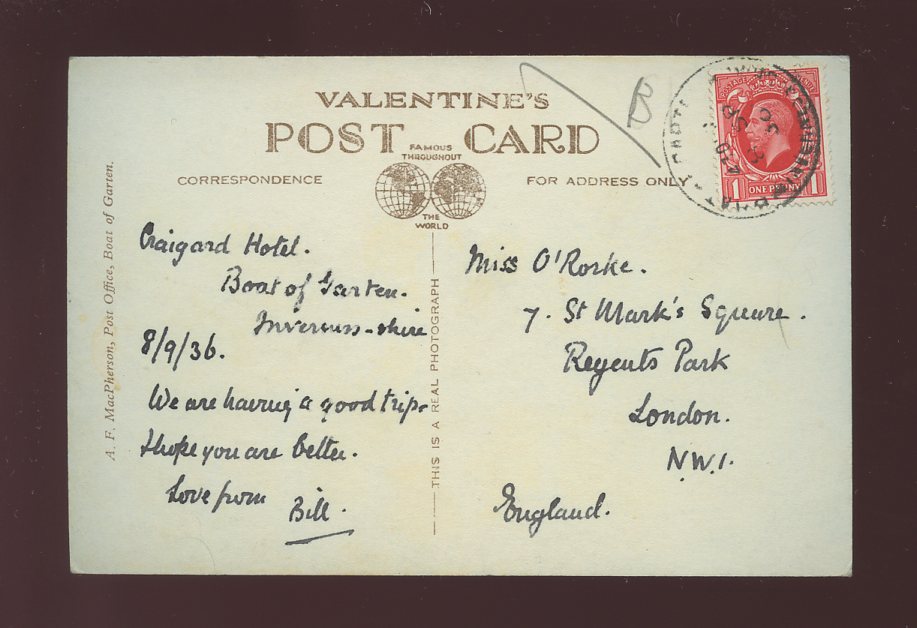 VALENTINE'S
POST CARD
FAMOUS
THROUGHOUT
THE
WORLD
CORRESPONDENCE
FOR ADDRESS ONLY
POSTAGE
ONE PENNY
1
1
A. F. MacPherson, Post Office, Boat of Garten.
THIS IS A REAL PHOTOGRAPH
Craigard Hotel.
Boat of Garten.
Inverness-shire
8/9/36.
We are having a good trip.
I hope you are better.
Love from
Bill.
Miss O'Rorke.
7. St Mark's Square.
Regents Park
London.
N.W.1.
England.